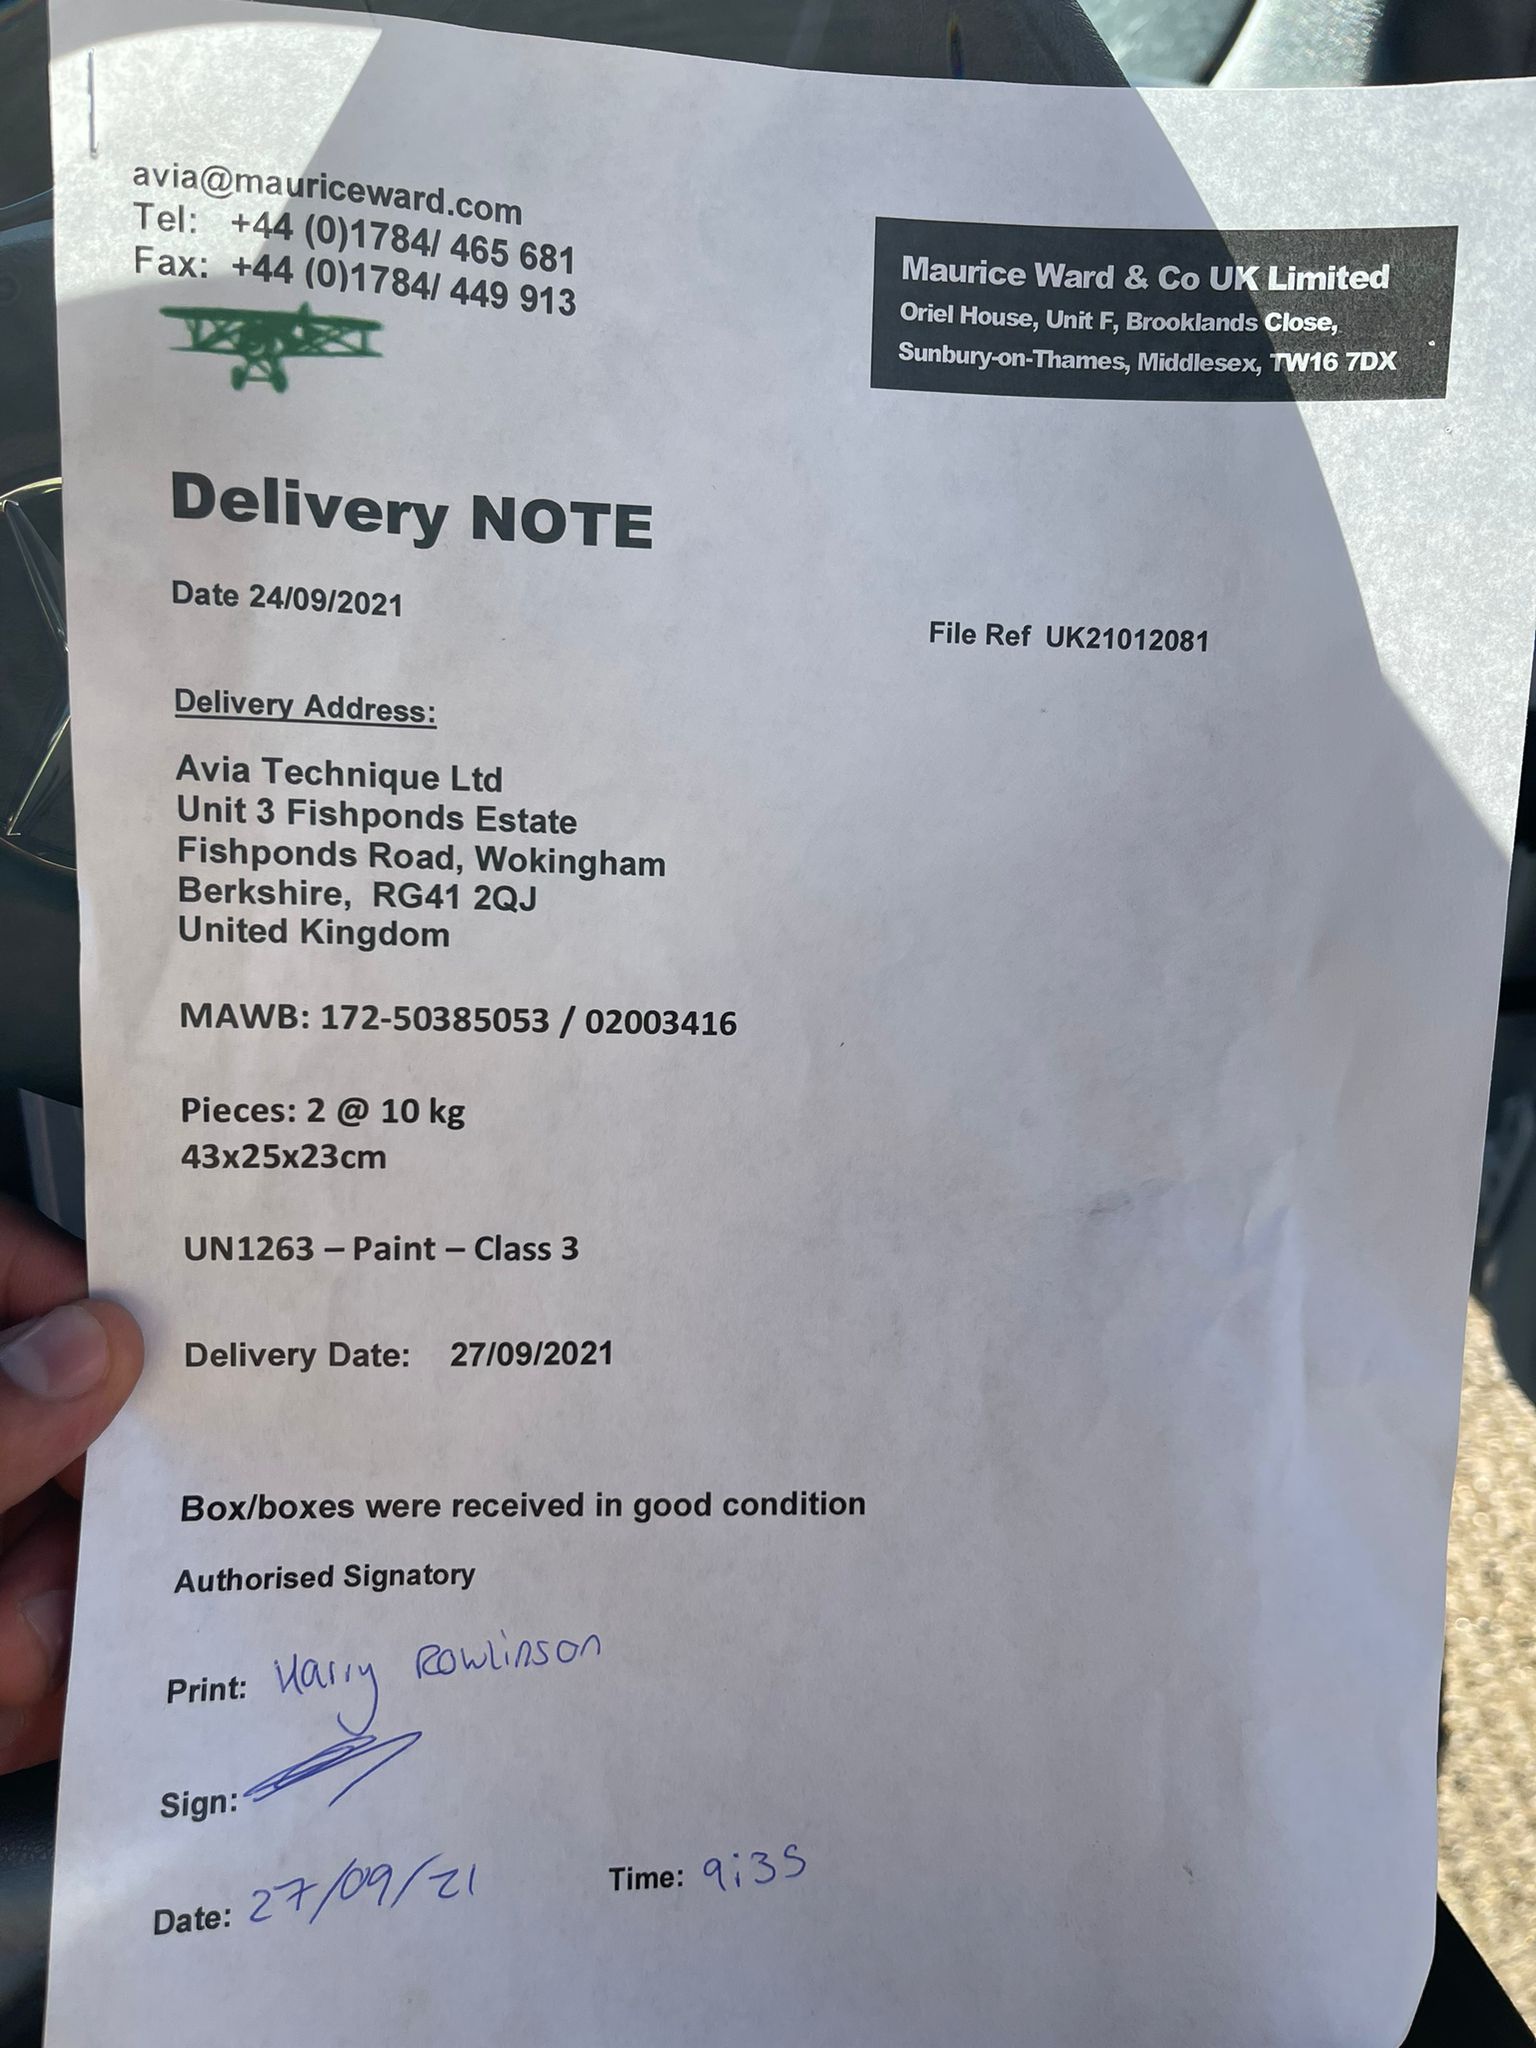 avia@mauriceward.com
Tel: +44 (0)1784/ 465 681
Fax: +44 (0)1784/ 449 913
Maurice Ward & Co UK Limited
Oriel House, Unit F, Brooklands Close,
Sunbury-on-Thames, Middlesex, TW16 7DX
Delivery NOTE
Date 24/09/2021
File Ref UK21012081
Delivery Address:
Avia Technique Ltd
Unit 3 Fishponds Estate
Fishponds Road, Wokingham
Berkshire, RG41 2QJ
United Kingdom
MAWB: 172-50385053 / 02003416
Pieces: 2 @ 10 kg
43x25x23cm
UN1263 – Paint – Class 3
Delivery Date: 27/09/2021
Box/boxes were received in good condition
Authorised Signatory
Print: Harry Rowlinson
Sign:
Date: 27/09/21 Time: 9:35